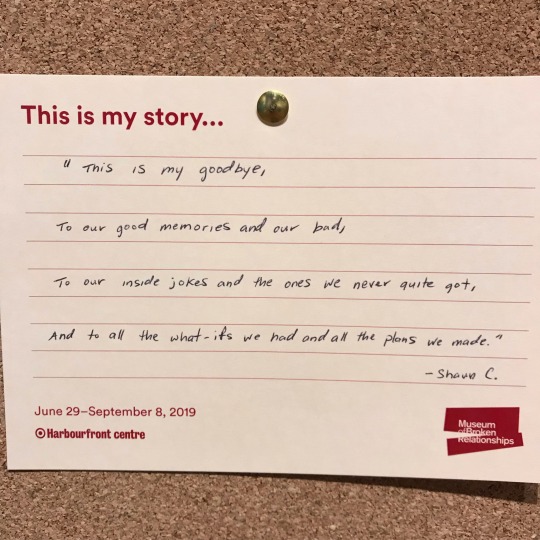 This is my story...
" This is my goodbye,
To our good memories and our bad,
To our inside jokes and the ones we never quite got,
And to all the what-ifs we had and all the plans we made."
- Shawn C.
June 29–September 8, 2019
Harbourfront centre
Museum
of Broken
Relationships